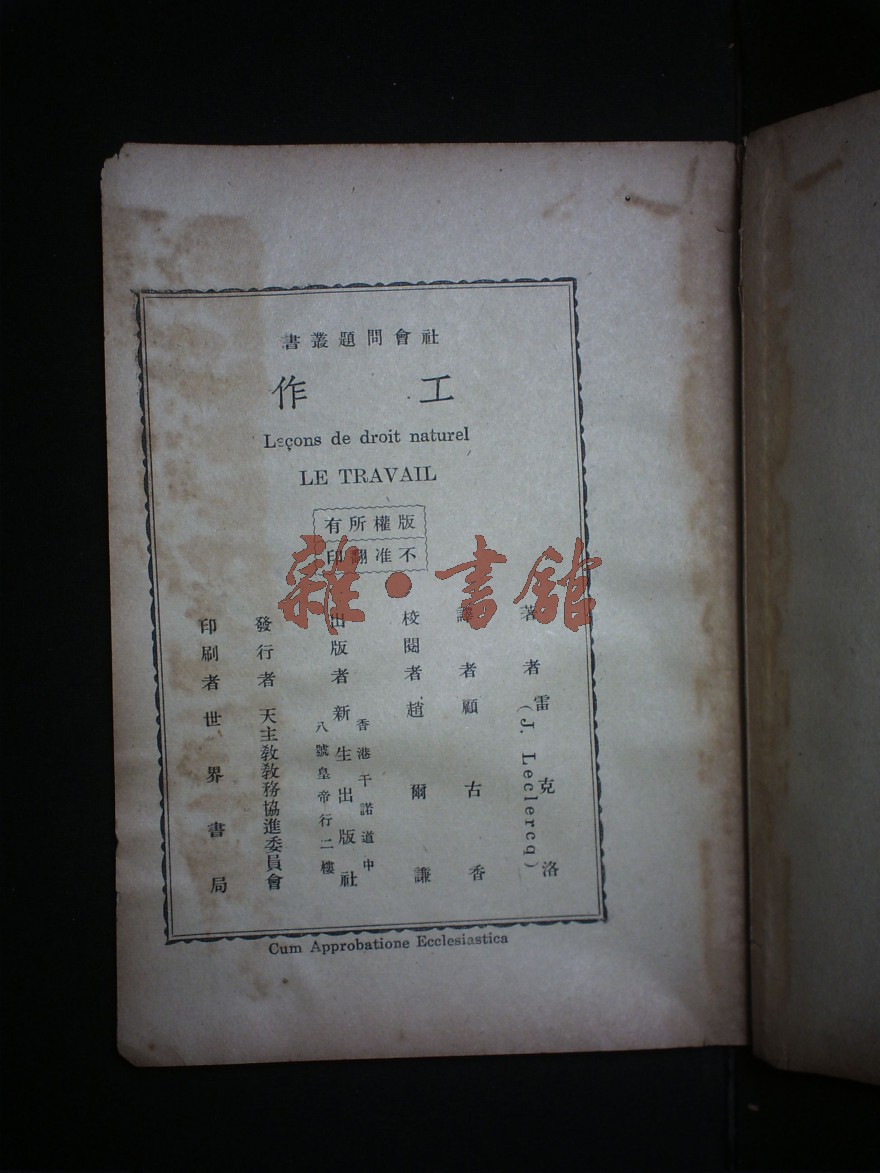 社會問題叢書
工作
Leçons de droit naturel
LE TRAVAIL
版權所有
不准翻印
雜·書館
著者 雷克洛
(J. Leclercq)
譯者 顧古香
校閱者 趙爾謙
出版者 新生出版社
香港干諾道中
八號皇帝行二樓
發行者 天主教教務協進委員會
印刷者 世界書局
Cum Approbatione Ecclesiastica